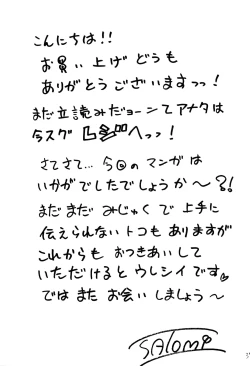 こんにちは!!
お買い上げどうも
ありがとうございますっっ!
まだ立読みだョーンてアナタは
今スグレジへっっ!
さてさて…らⓑのマンガは
いかがでしたでしょうか～?!
まだまだみじゅくで上手に
伝えられないトコもありますが
これからもおつきあいして
いただけるとウレシイです。
ではまたお会いしましょう～
SALOMi